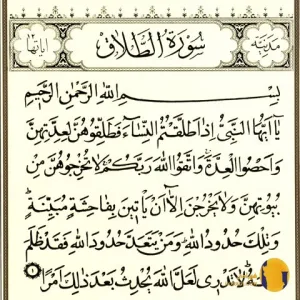 مدنية سورة الطلاق آياتها ١٢
بِسْمِ اللهِ الرَّحْمٰنِ الرَّحِيمِ
يَا أَيُّهَا النَّبِيُّ إِذَا طَلَّقْتُمُ النِّسَاءَ فَطَلِّقُوهُنَّ لِعِدَّتِهِنَّ
وَأَحْصُوا الْعِدَّةَ وَاتَّقُوا اللهَ رَبَّكُمْ لَا تُخْرِجُوهُنَّ مِنْ
بُيُوتِهِنَّ وَلَا يَخْرُجْنَ إِلَّا أَنْ يَأْتِينَ بِفَاحِشَةٍ مُبَيِّنَةٍ
وَتِلْكَ حُدُودُ اللهِ وَمَنْ يَتَعَدَّ حُدُودَ اللهِ فَقَدْ ظَلَمَ
نَفْسَهُ لَا تَدْرِي لَعَلَّ اللهَ يُحْدِثُ بَعْدَ ذٰلِكَ أَمْرًا ١